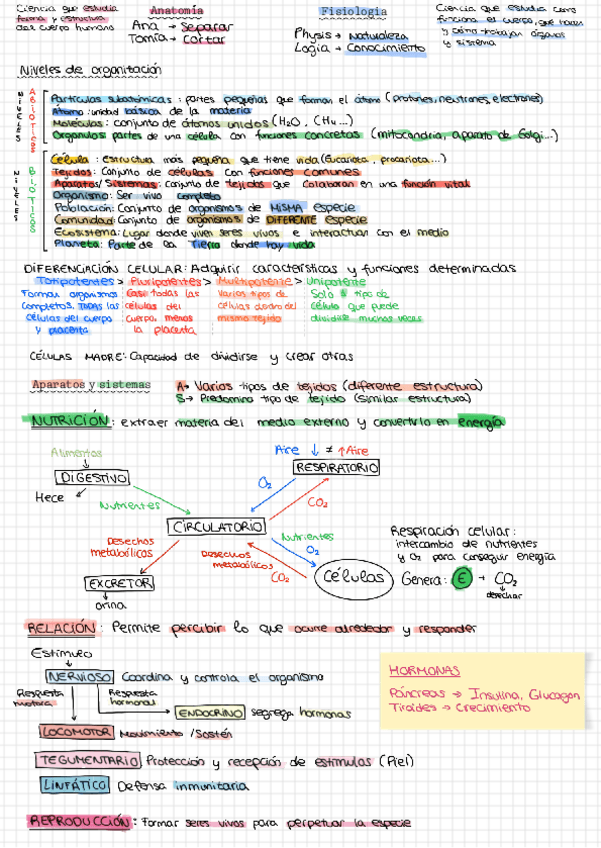 Ciencia que estudia
forma y estructura
del cuerpo humano
Anatomía
Ana → Separar
Tomía → Cortar
Fisiología
Physis → Naturaleza
Logia → Conocimiento
Ciencia que estudia como
funciona el cuerpo, que hacen
y cómo trabajan órganos
y sistema
Niveles de organización
NIVELES
ABIÓTICOS
Partículas subatómicas: partes pequeñas que forman el átomo (protones, neutrones, electrones)
Átomo: unidad básica de la materia
Moléculas: conjunto de átomos unidos (H₂O, CH₄...)
Organulos: partes de una célula con funciones concretas (mitocondria, aparato de Golgi...)
NIVELES
BIÓTICOS
Célula: estructura más pequeña que tiene vida (Eucariota, procariota...)
Tejidos: Conjunto de células con funciones comunes
Aparatos/Sistemas: conjunto de tejidos que colaboran en una función vital
Organismo: Ser vivo completo
Población: Conjunto de organismos de MISMA especie
Comunidad: Conjunto de organismos de DIFERENTE especie
Ecosistema: Lugar donde viven seres vivos e interactúan con el medio
Planeta: Parte de la Tierra donde hay vida
DIFERENCIACIÓN CELULAR: Adquirir características y funciones determinadas
Totipotentes > Pluripotentes > Multipotente > Unipotente
Forman organismos
completos, todas las
células del cuerpo
y placenta
Casi todas las
células del
cuerpo, menos
la placenta
Varios tipos de
células dentro del
mismo tejido
Solo 1 tipo de
célula que puede
dividirse muchas veces
CÉLULAS MADRE: Capacidad de dividirse y crear otras
Aparatos y sistemas
A→ Varios tipos de tejidos (diferente estructura)
S→ Predomina tipo de tejido (similar estructura)
NUTRICIÓN: extraer materia del medio externo y convertirlo en energía
Alimentos
DIGESTIVO
Hece
Nutrientes
Aire ↓ ≠ ↑Aire
RESPIRATORIO
O₂
CO₂
CIRCULATORIO
Desechos
metabólicos
EXCRETOR
orina
Nutrientes
O₂
Desechos
metabólicos
CO₂
Células
Respiración celular:
intercambio de nutrientes
y O₂ para conseguir energía
Genera: E + CO₂
desechar
RELACIÓN: Permite percibir lo que ocurre alrededor y responder
Estímulo
NERVIOSO Coordina y controla el organismo
Respuesta
motora
Respuesta
hormonal
ENDOCRINO segrega hormonas
LOCOMOTOR Movimiento / Sostén
TEGUMENTARIO Protección y recepción de estímulos (Piel)
LINFÁTICO Defensa inmunitaria
HORMONAS
Páncreas → Insulina, Glucagon
Tiroides → Crecimiento
REPRODUCCIÓN: Formar seres vivos para perpetuar la especie